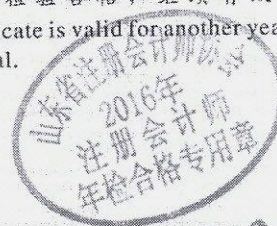 cate is valid for another yea
al.
山东省注册会计师协会
2016年
注册会计师
年检合格专用章